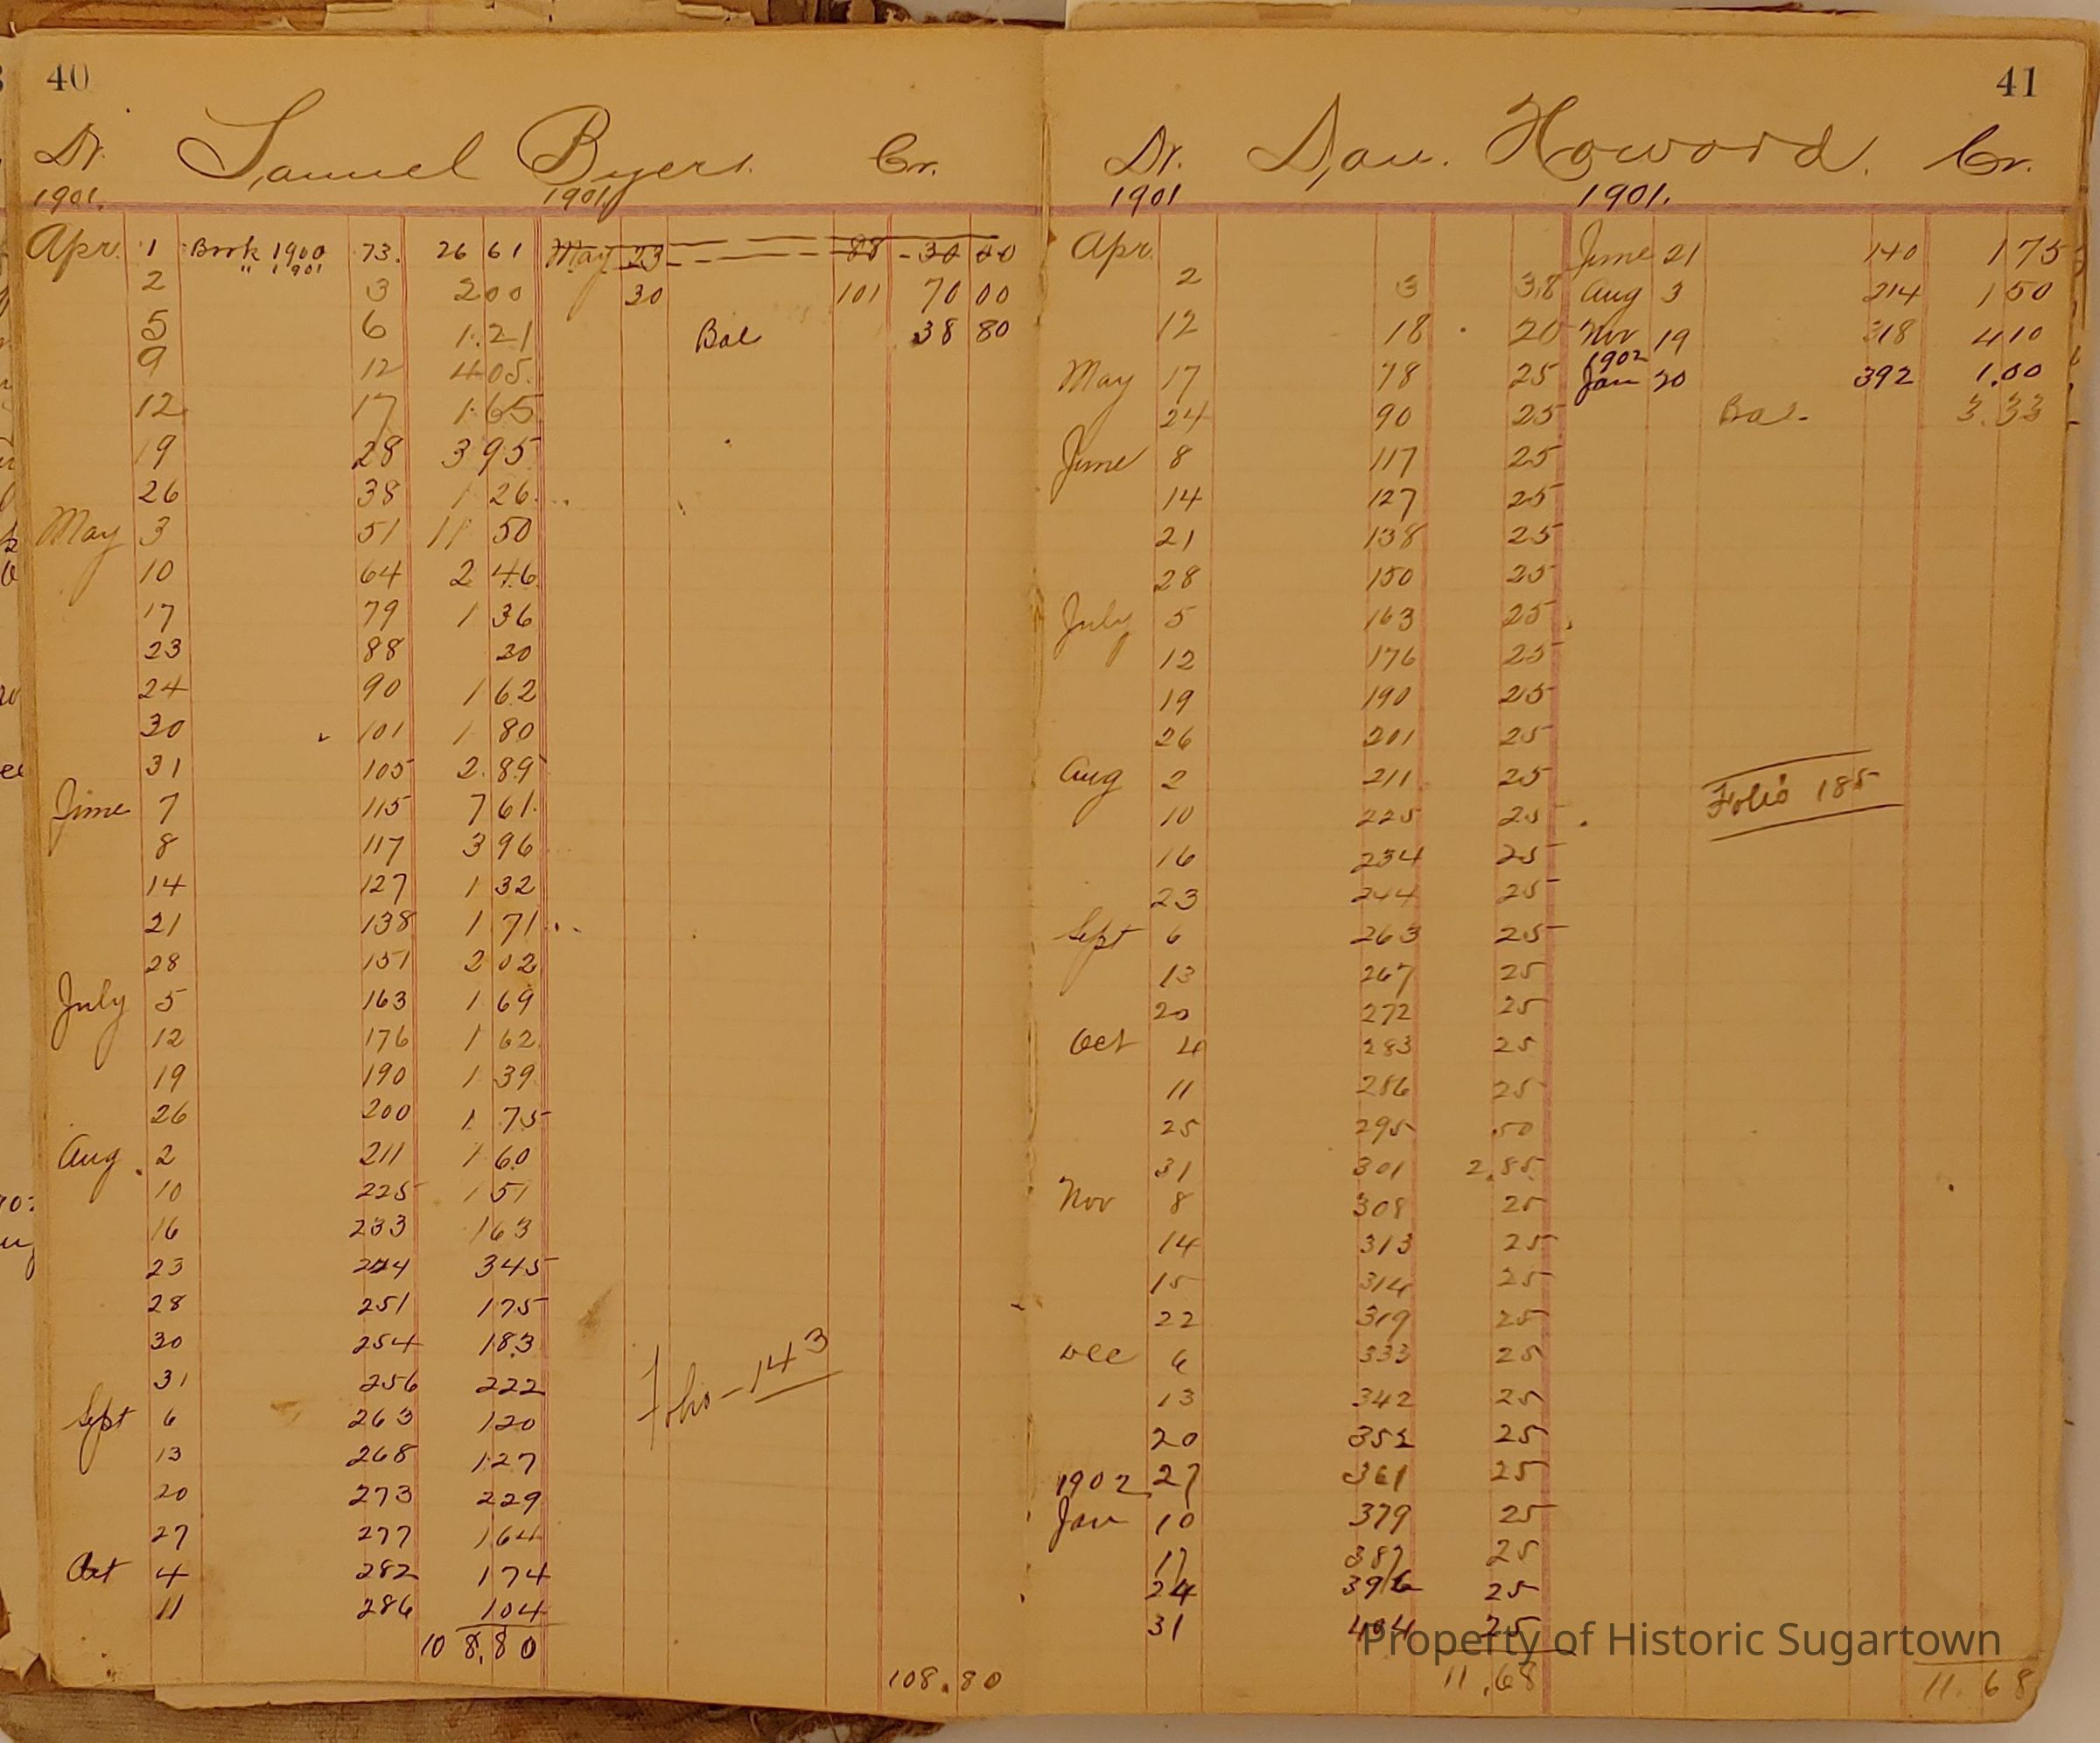 40
Dr. Samuel Byers. Cr.
1901. 1901
Apr. 1 Book 1900 73. 26 61 May 23 88 30 00
" 1901
2 3 2 00 30 101 70 00
5 6 1.21 Bal 38 80
9 12 4 05.
12 17 1.65
19 28 3 95
26 38 1 26
May 3 51 11 50
10 64 2 46
17 79 1 36
23 88 20
24 90 1 62
30 101 1 80
31 105 2.89
June 7 115 7 61.
8 117 3 96
14 127 1 32
21 138 1 71
28 151 2 02
July 5 163 1 69
12 176 1 62
19 190 1 39
26 200 1 75
Aug. 2 211 1 60
10 225 1 51
16 233 1 63
23 244 3 45
28 251 1 75
30 254 1 83
31 256 2 22
Folio - 143
Sept 6 263 1 20
13 268 1 27
20 273 2 29
27 277 1 64
Oct 4 282 1 74
11 286 1 04
10 8.80
108.80
41
Dr. Dan. Howard. Cr.
1901 1901.
Apr. June 21 140 1 75
2 3 38 Aug 3 214 1 50
12 18 20 Nov 19 318 4 10
1902
May 17 78 25 Jan 20 392 1.00
24 90 25 Bal. 3.33
June 8 117 25
14 127 25
21 138 25
28 150 25
July 5 163 25
12 176 25
19 190 25
26 201 25
Aug 2 211 25
Folio 185
10 225 25
16 234 25
23 244 25
Sept 6 263 25
13 267 25
20 272 25
Oct 4 283 25
11 286 25
25 295 .50
31 301 2.85
Nov 8 308 25
14 313 25
15 314 25
22 319 25
Dec 6 333 25
13 342 25
20 352 25
1902 27 361 25
Jan 10 379 25
17 387 25
24 396 25
31 404 25
Property of Historic Sugartown
11.68 11.68